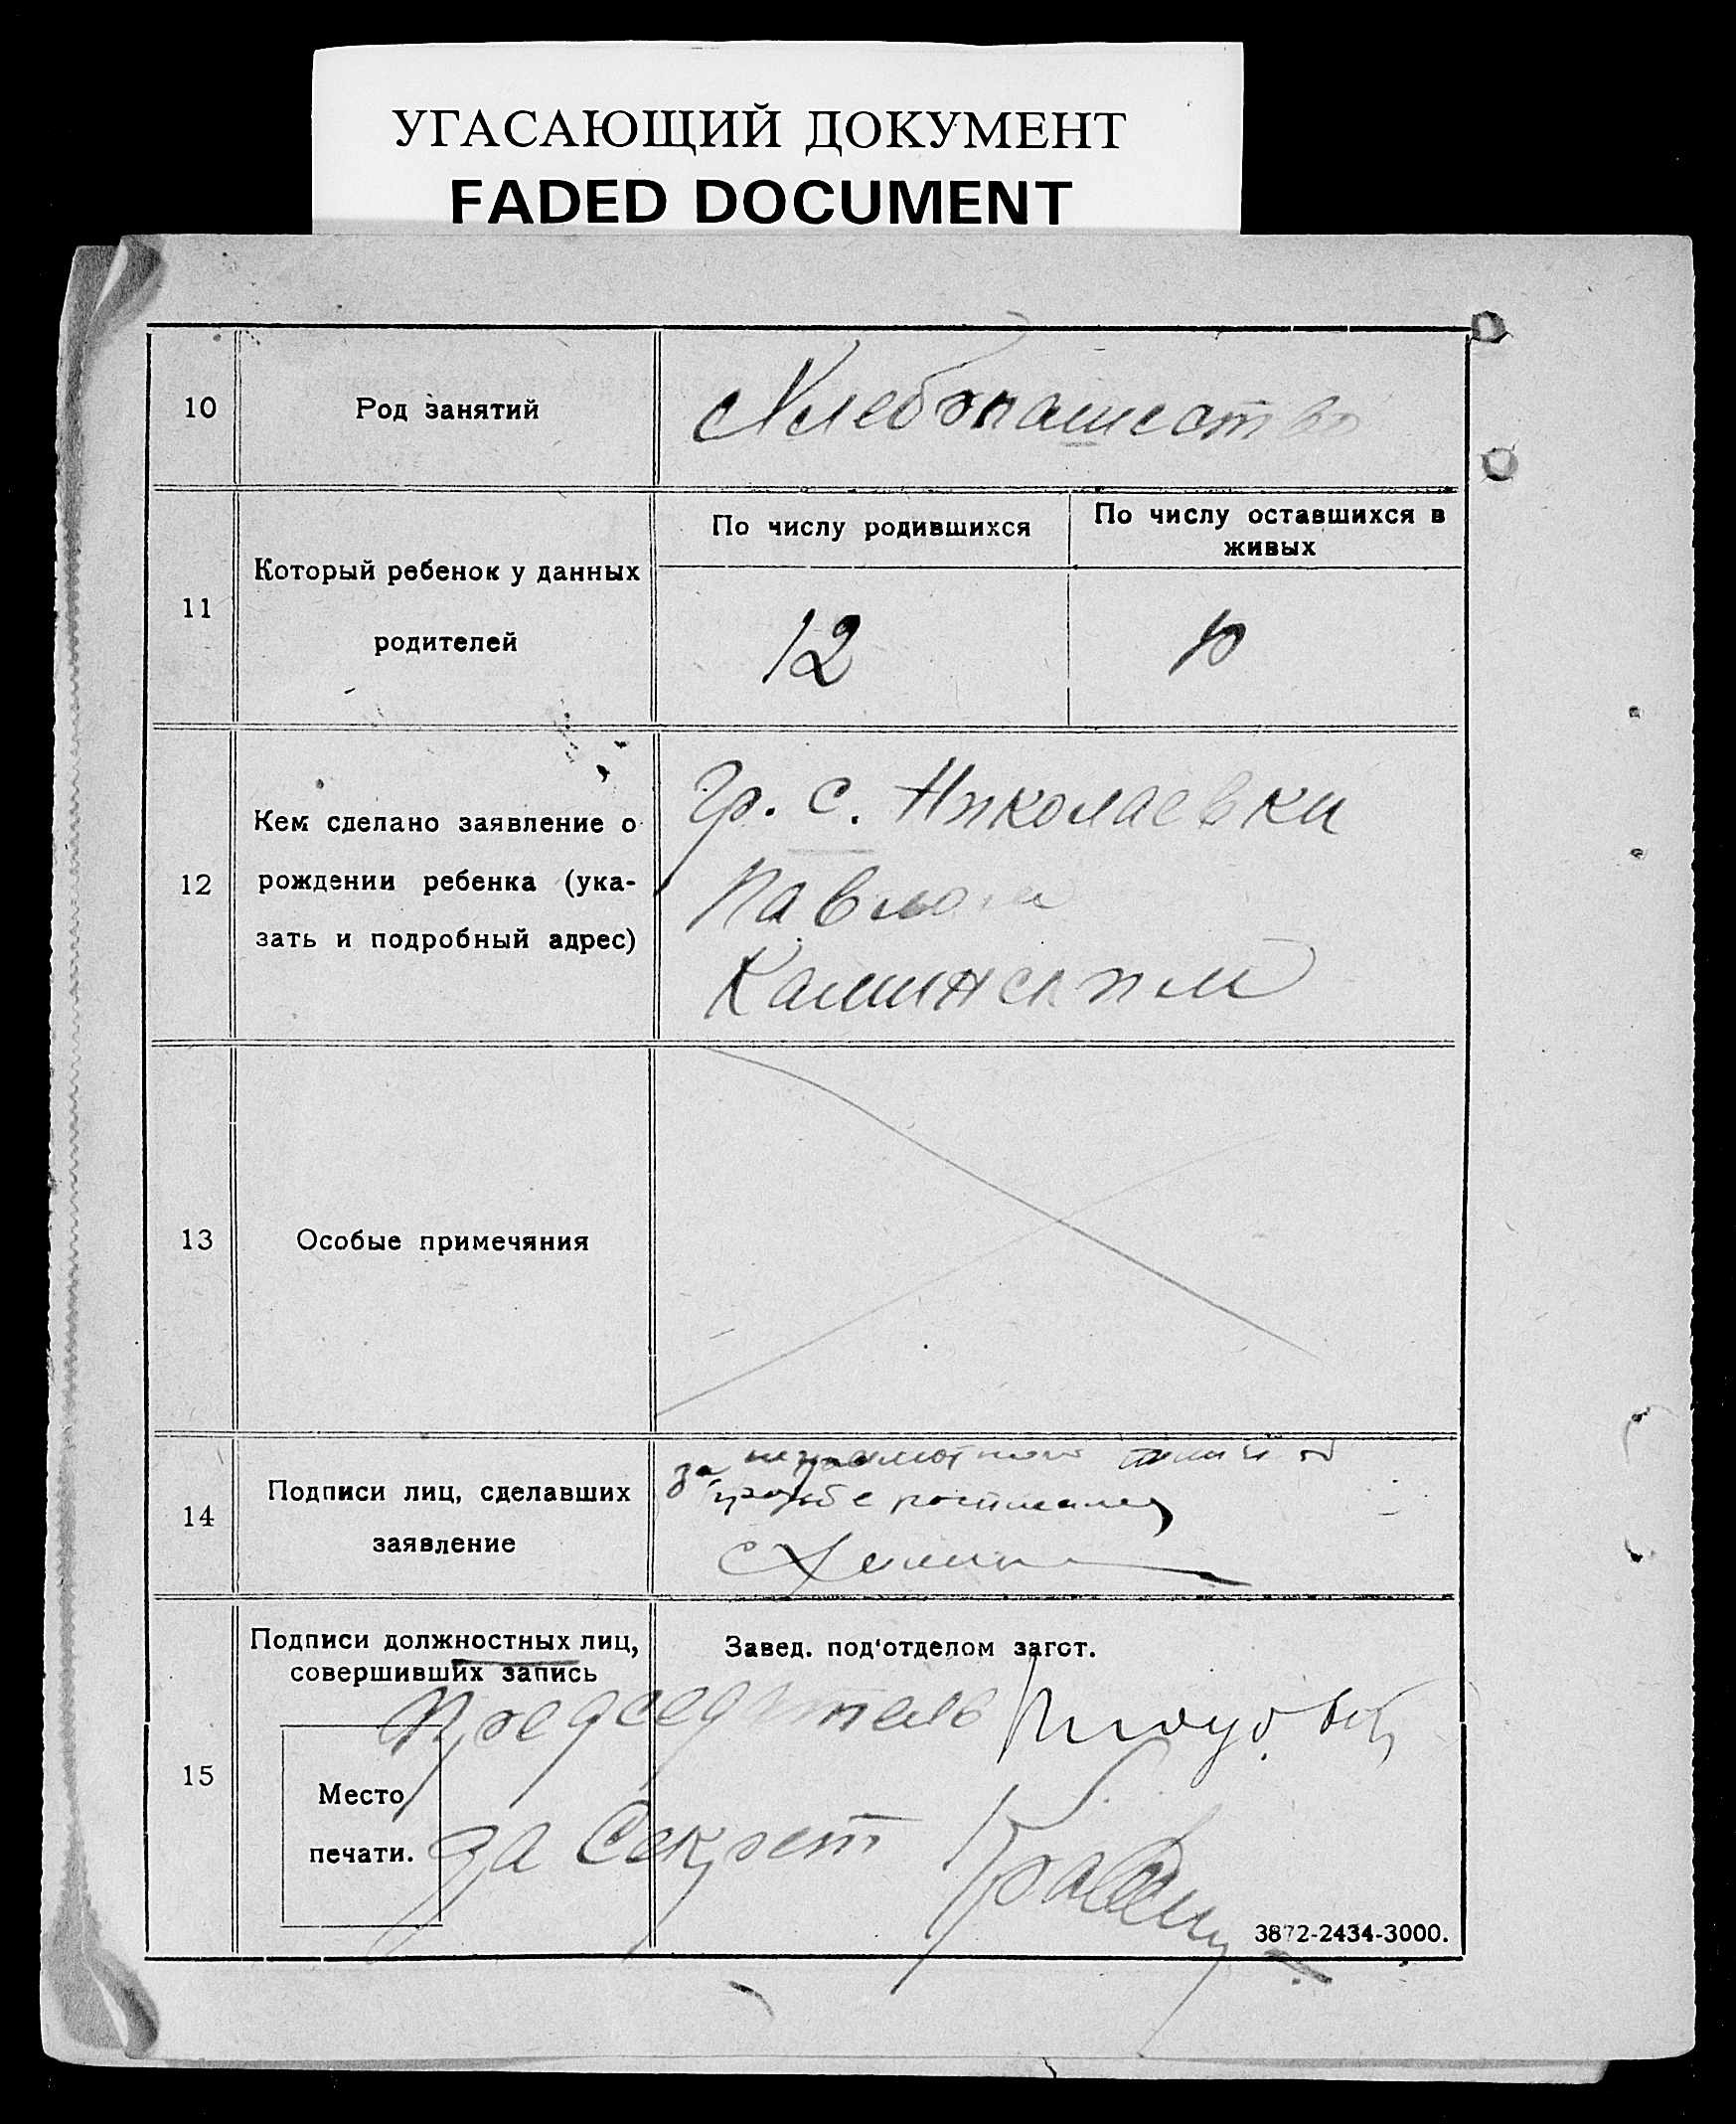 УГАСАЮЩИЙ ДОКУМЕНТ
FADED DOCUMENT
10
Род занятий
Хлебопашество
11
Который ребенок у данных
родителей
По числу родившихся
По числу оставшихся в
живых
12
10
12
Кем сделано заявление о
рождении ребенка (ука-
зать и подробный адрес)
Гр. с. Николаевки
Павлом
Каминским
13
Особые примечяния
14
Подписи лиц, сделавших
заявление
за неграмотного
просьбе
15
Подписи должностных лиц,
совершивших запись
Завед. под‘отделом загст.
Председатель
Место
печати.
за Секрет
3872-2434-3000.